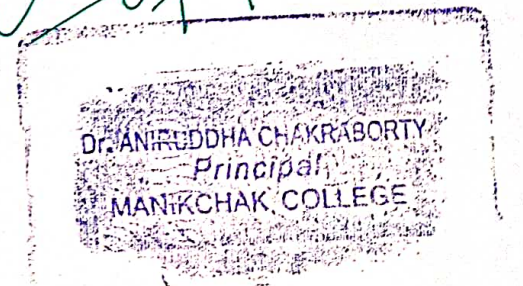 Dr. ANIRUDDHA CHAKRABORTY
Principal
MANIKCHAK COLLEGE